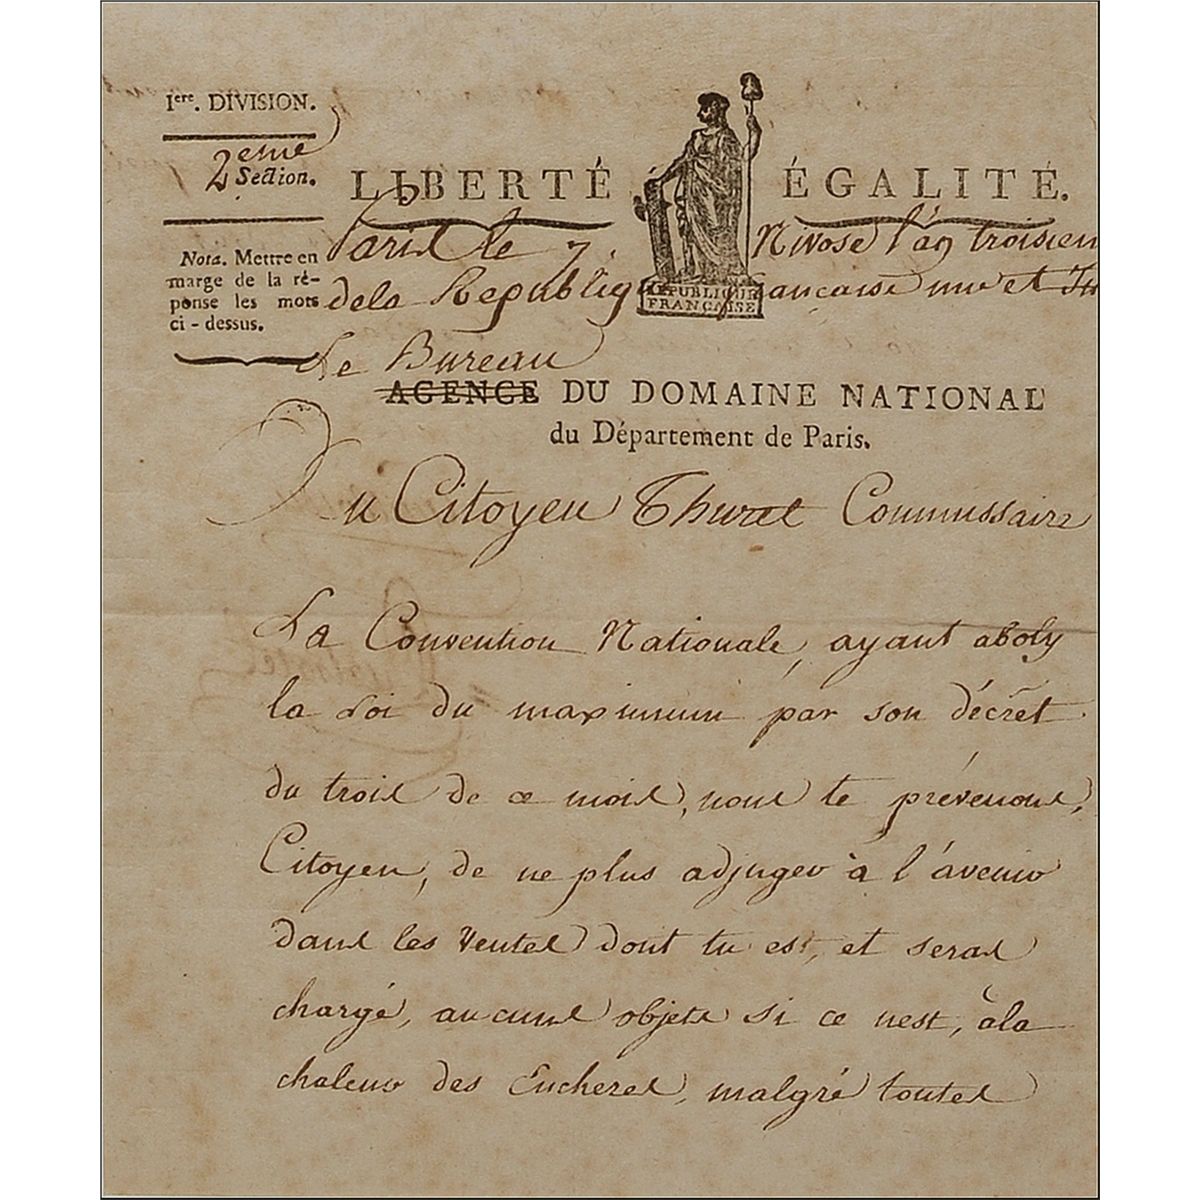 Iere. DIVISION.
2eme
Section.
LIBERTÉ ÉGALITÉ.
Nota. Mettre en
marge de la ré-
ponse les mots
ci-dessus.
Paris le 7 Nivose l'an troisiem
dela Republique francaise une et In
RÉPUBLIQUE
FRANÇAISE
Le Bureau
AGENCE DU DOMAINE NATIONAL
du Département de Paris.
Au Citoyen Thuret Commissaire
La Convention Nationale, ayant aboly
la Loi du maximum par son décret
du trois de ce mois, nous te prévenons,
Citoyen, de ne plus adjuger à l'avenir
dans les Ventes dont tu es, et seras
chargé, aucuns objets si ce nest, àla
chaleur des Encheres, malgré toutes